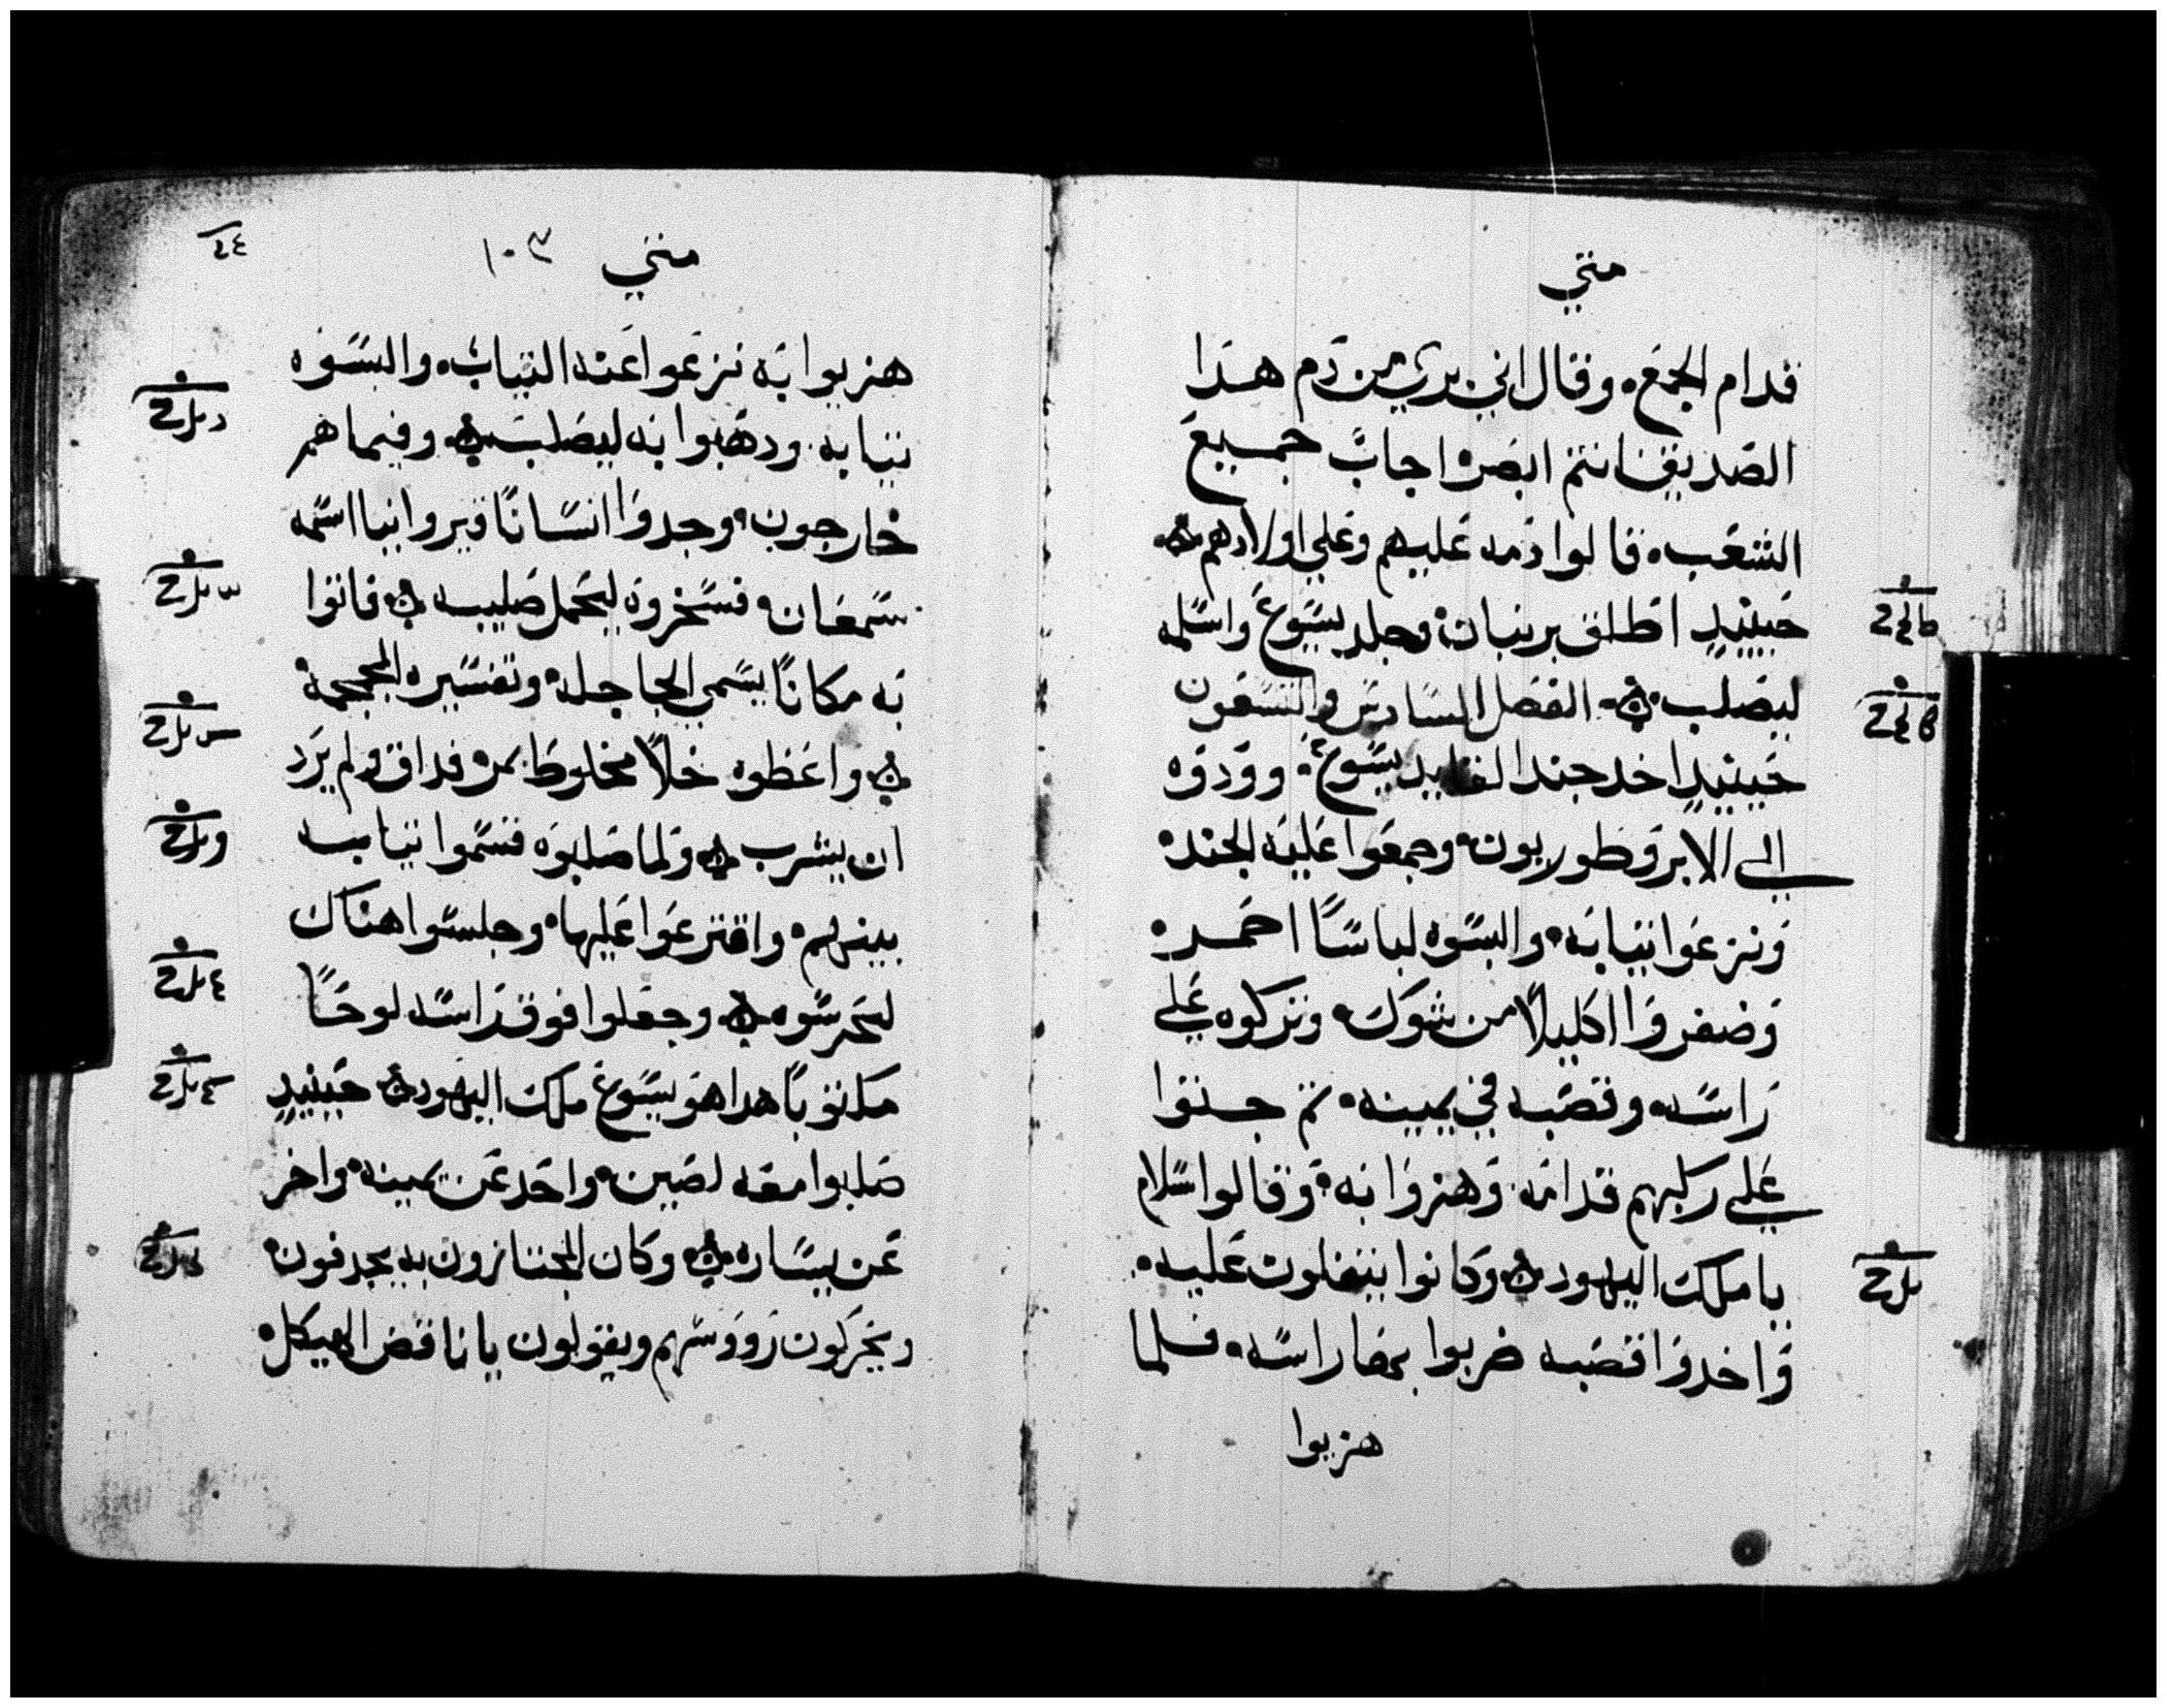 متي
قدام الجمع، وقال اني بري من دم هدا
الصديق انتم ابصروا اجاب جميع
الشعب، قالوا دمه عليهم وعلي اولادهم
حينيد اطلق برنبان، وجلد يسوع واسلمه
ليصلب الفصل السادس والتسعون
حينيد اخد جند القايد يسوع، وودوه
الي الابروطوريون، وجمعوا عليه الجند،
ونزعوا ثيابه، والبسوه لباسا احمر،
وضفروا اكليلا من شوك، وتركوه علي
راسه، وقصبه في يمينه، تم جتوا
علي ركبهم قدامه، وهزوا به، وقالوا سلام
يا ملك اليهود وكانوا يتفلون عليه،
واخدوا قصبه ضربوا بها راسه، فلما
هزيوا
متي ١٠٣
هزيوا به نزعوا عنه الثياب، والبسوه
ثيابه، ودهبوا به ليصلب وفيما هم
خارجون، وجدوا انسانا قيروانيا اسمه
سمعان، فسخروه ليحمل صليبه فاتوا
به مكانا يسمي الجاجله، وتفسيره الجمجمة،
واعطوه خلا مخلوطا بمر، فداق ولم يرد
ان يشرب ولما صلبوه قسموا ثيابه
بينهم، واقترعوا عليها، وجلسوا هناك
ليحرسوه وجعلوا فوق راسه لوحا
مكتوبا هدا هو يسوع ملك اليهود حينيد
صلبوا معه لصين، واحد عن يمينه، واخر
عن يساره وكان المجتازون به يجدفون،
ويحركون رووسهم ويقولون يا ناقض الهيكل،